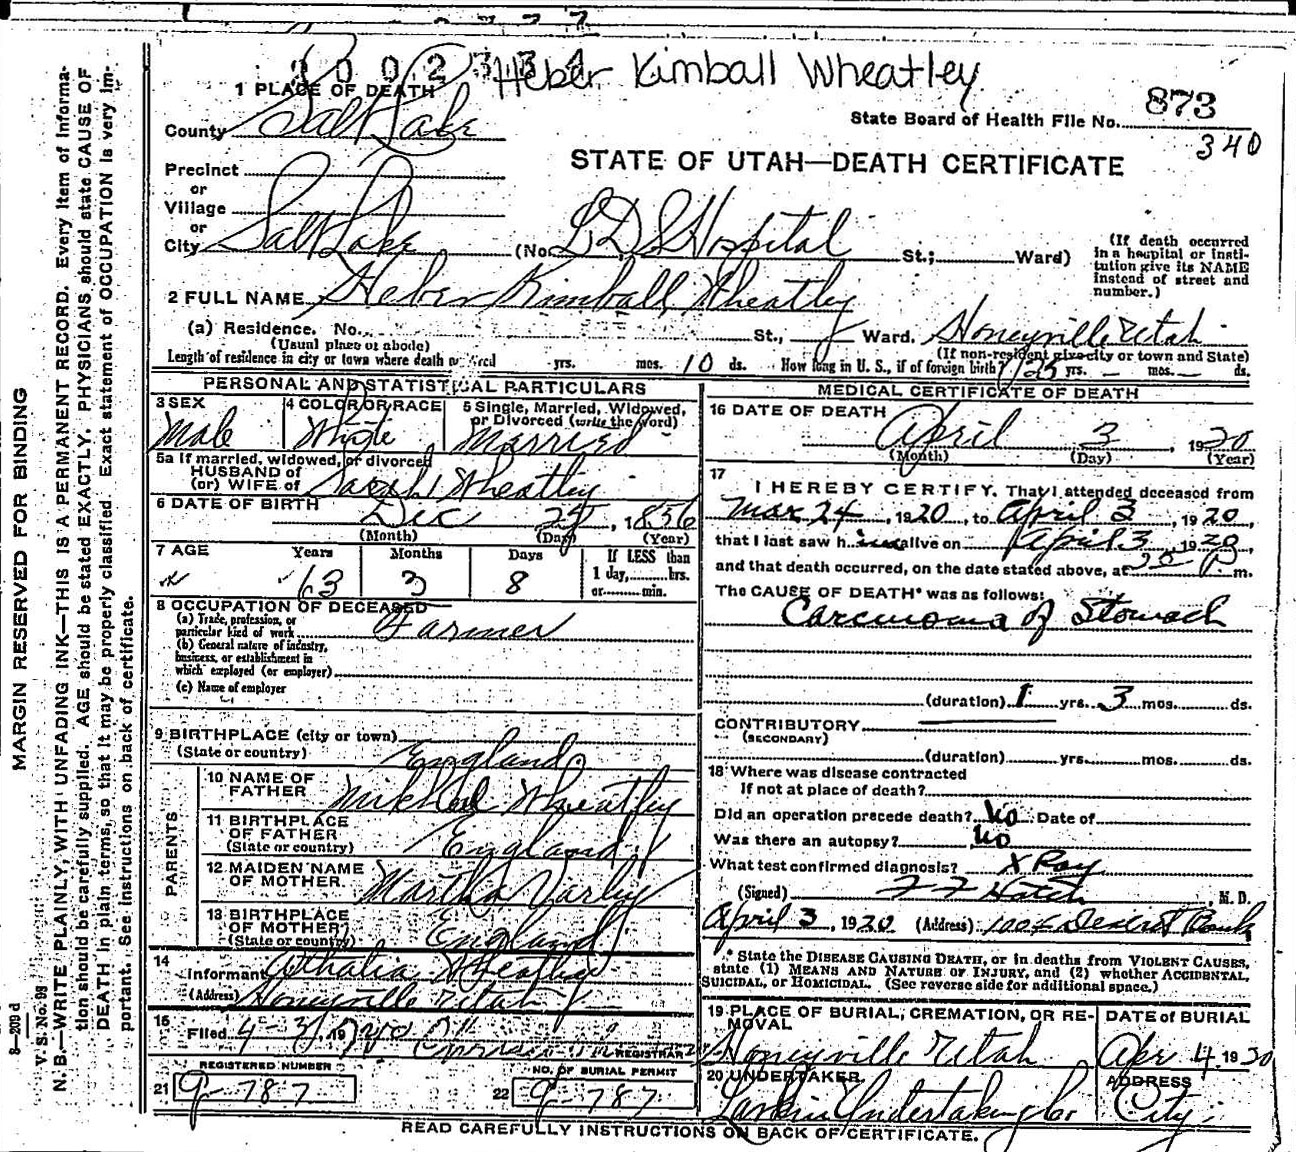 3 0 0 2 3 3 4
Heber Kimball Wheatley
1 PLACE OF DEATH
County Salt Lake
State Board of Health File No. 873
340
STATE OF UTAH—DEATH CERTIFICATE
Precinct
or
Village
or
City Salt Lake (No. L D S Hospital St.; Ward)
(If death occurred in a hospital or institution give its NAME instead of street and number.)
2 FULL NAME Heber Kimball Wheatley
(a) Residence. No. St., Ward. Honeyville Utah
(Usual place of abode) (If non-resident give city or town and State)
Length of residence in city or town where death occurred yrs. mos. 10 ds. How long in U. S., if of foreign birth? yrs. — mos. — ds.
PERSONAL AND STATISTICAL PARTICULARS
3 SEX Male
4 COLOR OR RACE White
5 Single, Married, Widowed, or Divorced (write the word) Married
5a If married, widowed, or divorced
HUSBAND of
(or) WIFE of Sarah Wheatley
6 DATE OF BIRTH Dec 25, 1856
(Month) (Day) (Year)
7 AGE Years 63 Months 3 Days 8 If LESS than 1 day, hrs. or min.
8 OCCUPATION OF DECEASED
(a) Trade, profession, or particular kind of work Farmer
(b) General nature of industry, business, or establishment in which employed (or employer)
(c) Name of employer
9 BIRTHPLACE (city or town)
(State or country) England
PARENTS
10 NAME OF FATHER Wheatley
11 BIRTHPLACE OF FATHER (State or country) England
12 MAIDEN NAME OF MOTHER Martha Varley
13 BIRTHPLACE OF MOTHER (State or country) England
14 Informant Athalia Wheatley
(Address) Honeyville Utah
15 Filed 4-3, 1920 REGISTRAR
REGISTERED NUMBER
21 9-787
NO. OF BURIAL PERMIT
22 9-787
MEDICAL CERTIFICATE OF DEATH
16 DATE OF DEATH April 3, 1920
(Month) (Day) (Year)
17 I HEREBY CERTIFY, That I attended deceased from
Mar 24, 1920, to April 3, 1920,
that I last saw him alive on April 3, 1920,
and that death occurred, on the date stated above, at P m.
The CAUSE OF DEATH* was as follows:
Carcinoma of Stomach
(duration) 1 yrs. 3 mos. ds.
CONTRIBUTORY
(SECONDARY)
(duration) yrs. mos. ds.
18 Where was disease contracted
If not at place of death?
Did an operation precede death? No Date of
Was there an autopsy? No
What test confirmed diagnosis? X Ray
(Signed) F F Hatch, M. D.
April 3, 1920 (Address) Deseret Bank
* State the DISEASE CAUSING DEATH, or in deaths from VIOLENT CAUSES, state (1) MEANS AND NATURE OF INJURY, and (2) whether ACCIDENTAL, SUICIDAL, or HOMICIDAL. (See reverse side for additional space.)
19 PLACE OF BURIAL, CREMATION, OR REMOVAL Honeyville Utah
DATE OF BURIAL Apr 4 1920
20 UNDERTAKER Larkin Undertaking Co
ADDRESS City
READ CAREFULLY INSTRUCTIONS ON BACK OF CERTIFICATE.
MARGIN RESERVED FOR BINDING
8—209 d
V. S. No. 98
N. B.—WRITE PLAINLY, WITH UNFADING INK—THIS IS A PERMANENT RECORD. Every item of information should be carefully supplied. AGE should be stated EXACTLY. PHYSICIANS should state CAUSE OF DEATH in plain terms, so that it may be properly classified. Exact statement of OCCUPATION is very important. See instructions on back of certificate.